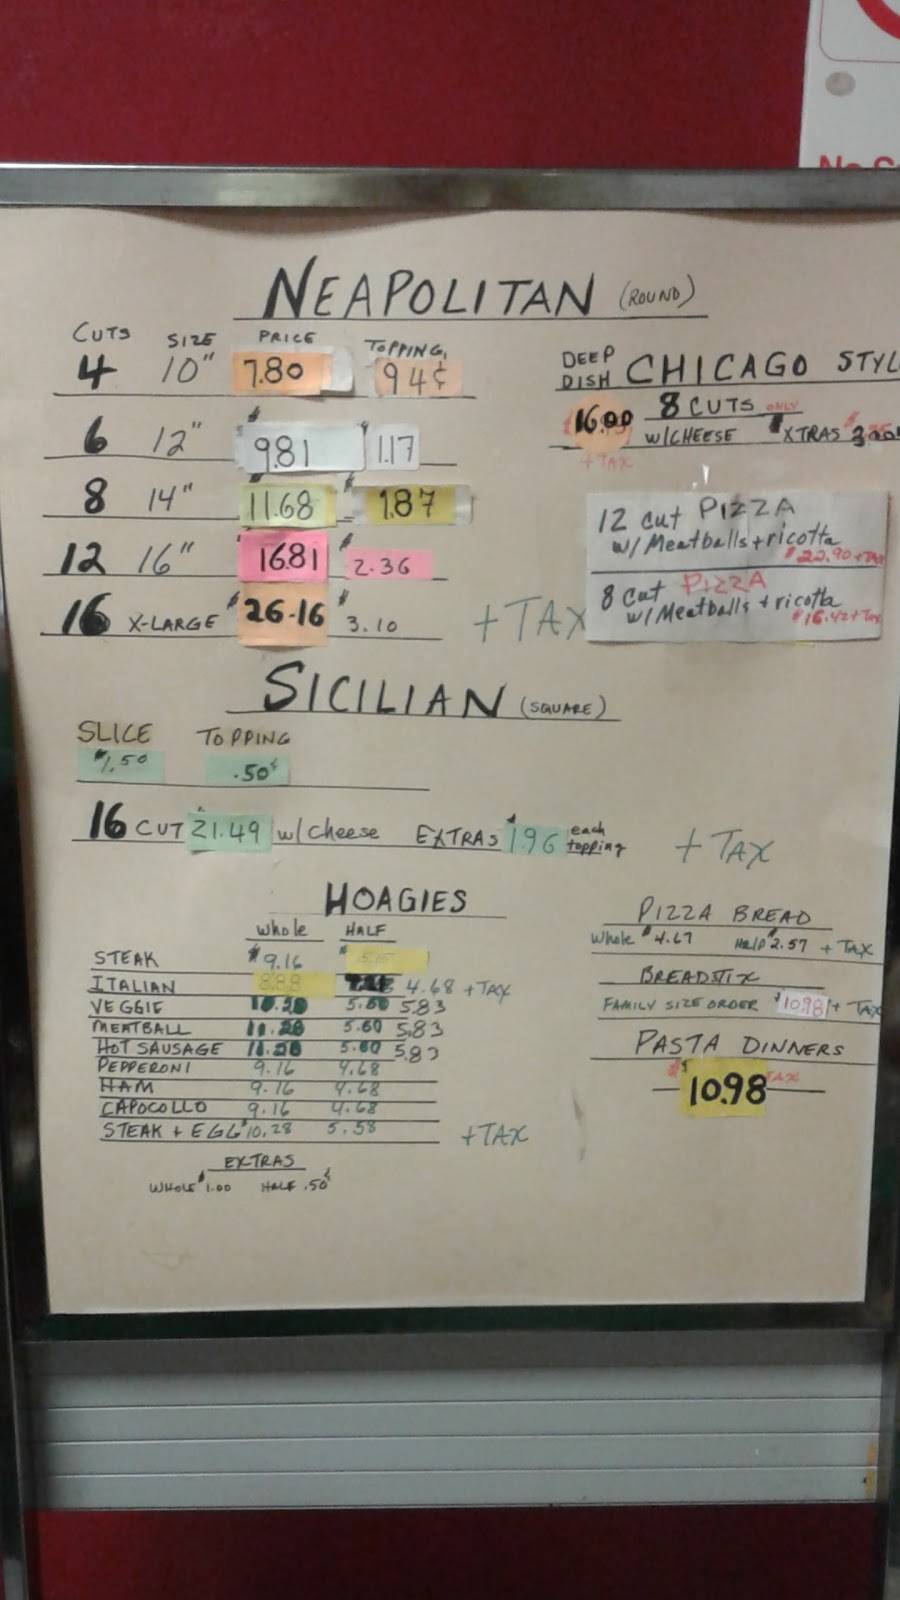 NEAPOLITAN (ROUND)
CUTS SIZE PRICE TOPPING
4 10" 7.80 94¢
6 12" $9.81 $1.17
8 14" $11.68 $1.87
12 16" $16.81 $2.36
16 X-LARGE $26.16 $3.10
+TAX
DEEP DISH CHICAGO STYL
16.00 8 CUTS ONLY
W/CHEESE XTRAS
+TAX
12 cut PIZZA
w/Meatballs+ricotta
$22.90+TAX
8 cut PIZZA
w/Meatballs+ricotta
$16.42+Tax
SICILIAN (SQUARE)
SLICE TOPPING
$1.50 .50¢
16 CUT 21.49 w/cheese EXTRAS $1.96 each topping
+TAX
HOAGIES
Whole HALF
STEAK $9.16
ITALIAN 8.88 4.68 +TAX
VEGGIE 5.60 5.83
MEATBALL 11.28 5.60 5.83
HOT SAUSAGE 5.60 5.83
PEPPERONI 9.16 4.68
HAM 9.16 4.68
CAPOCOLLO 9.16 4.68
STEAK + EGG $10.28 5.58 +TAX
EXTRAS
WHOLE $1.00 HALF .50¢
PIZZA BREAD
Whole $4.67 Half $2.57 +TAX
BREADSTIX
FAMILY SIZE ORDER $10.98 + TAX
PASTA DINNERS
$10.98 TAX